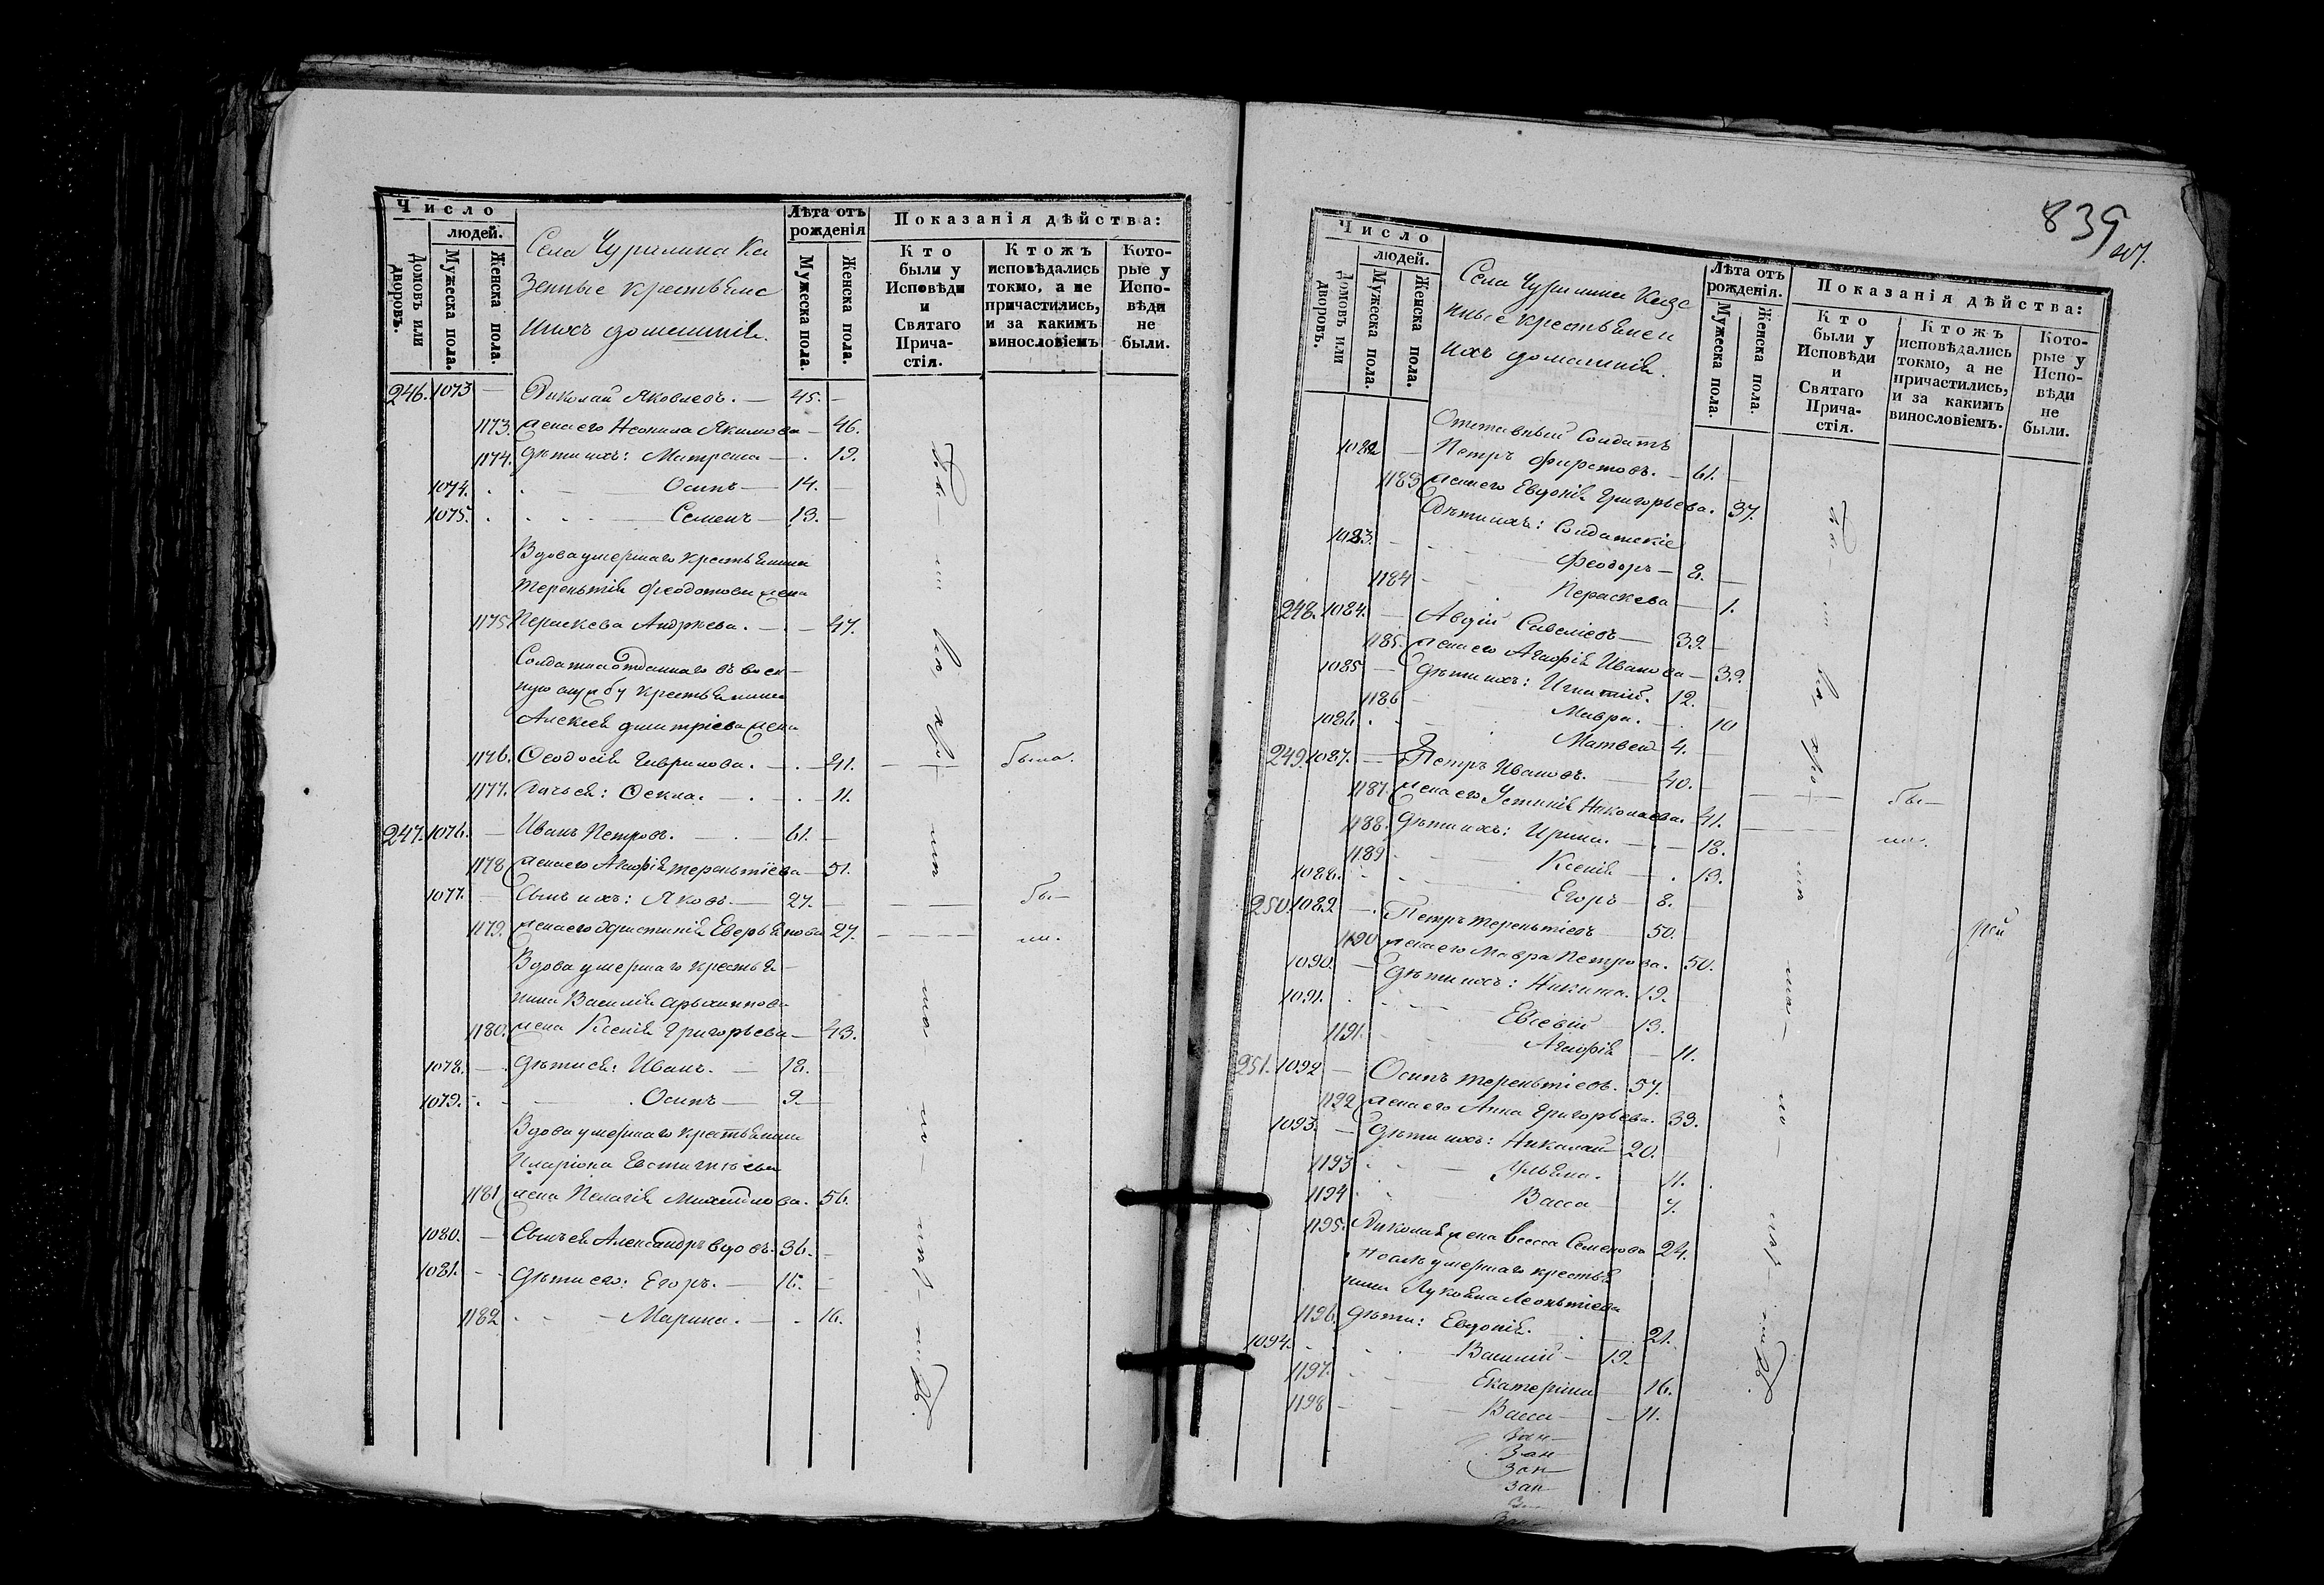 Число
людей.
Домовъ или дворовъ.
Мужеска пола.
Женска пола.
Села Чурилина Ка
зенные крестьяне
и ихъ домашнія.
Лѣта отъ рожденія
Мужеска пола.
Женска пола.
Показанія дѣйства:
Кто были у Исповѣди и Святаго Прича-стія.
Ктожъ исповѣдались токмо, а не причастились, и за какимъ винословіемъ
Кото-рые у Испо-вѣди не были.
246. 1073 — Николай Яковлевъ. — 45. —
1173. жена его Неонила Якимова — 46.
1174. Дѣти ихъ: Матрена — 19.
1074. Осипъ — 14. —
1075. Семенъ — 13. —
Вдова умершаго крестьянина
Терентія Феодотова жена
1175 Параскева Андреева. — 47.
Солдатка отданнаго въ воен-
ную службу крестьянина
Алексея Дмитріева жена
1176. Феодосія Гаврилова. — 41. была.
1177. Дочь ея: Фекла. — 11.
247. 1076. — Иванъ Петровъ. — 61. —
1178 жена его Агафія Терентіева — 51.
1077. — Сынъ ихъ: Яковъ. — 27. — бы-
1179. жена его Христинія Аверьянова 27. ли.
Вдова умершаго крестья-
нина Василія Архиппова
1180. жена Ксенія Григорьева — 43.
1078. — Дѣти ея: Иванъ. — 18.
1079. Осипъ — 9.
Вдова умершаго крестьянина
Иларіона Евстигнѣева
1181 жена Пелагія Михайлова. 56.
1080. — Сынъ ея Александръ вдовъ. 36. —
1081. — Дѣти его: Егоръ. — 15. —
1182 Марина. — 16.
839
Число
людей.
Домовъ или дворовъ.
Мужеска пола.
Женска пола.
Села Чурилина Казе
нные крестьяне и
ихъ домашнія.
Лѣта отъ рожденія.
Мужеска пола.
Женска пола.
Показанія дѣйства:
Кто были у Исповѣди и Святаго Прича-стія.
Ктожъ исповѣдались токмо, а не причастились, и за какимъ винословіемъ.
Кото-рые у Испо-вѣди не были.
Отставный Солдатъ
1082 — Петръ Фирстовъ. — 61. —
1183 жена его Евдокія Григорьева. 37.
Дѣти ихъ: Солдатскіе
1083. Феодоръ — 8. —
1184 Параскева — 1.
248. 1084. — Авдій Савеліевъ — 39. —
1185. жена его Агафія Иванова — 39.
1085 — Дѣти ихъ: Игнатій. 12.
1186 Мавра. — 10
1086. Матвей 4. —
249. 1087. — Петръ Ивановъ. — 40. — бы-
1187. жена его Устинія Николаева. 41. ли.
1188. Дѣти ихъ: Ирина. — 18.
1189 Ксенія — 13.
1088. Егоръ — 8.
250. 1089 — Петръ Терентіевъ 50.
1190 жена его Мавра Петрова. 50.
1090. — Дѣти ихъ: Никита. 19.
1091. Евсевій 13.
1191. Агафія — 11.
251. 1092 — Осипъ Терентіевъ. 57.
1192 жена его Анна Григорьева. 33.
1093. — Дѣти ихъ: Николай 20.
1193 Ульяна. 11.
1194 Васса 7.
1195. Николая жена Васса Семенова 24.
После умершаго крестья
нина Лукояна Леонтіева
1196. Дѣти: Евдокія. 21.
1094. Василій — 19.
1197. Екатерина 16.
1198 Васса — 11.
Зан
Зан
Зан
зан